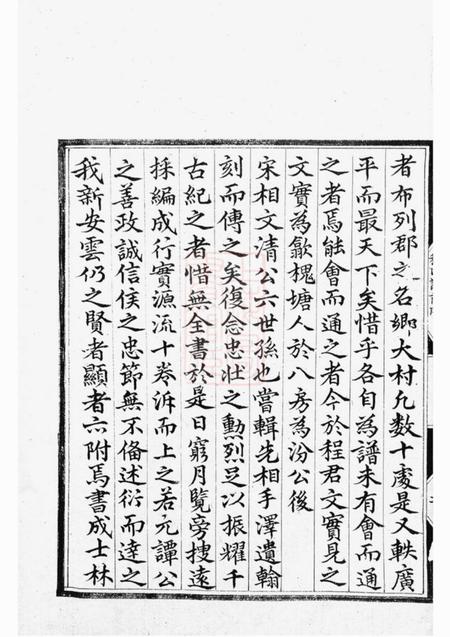 者布列郡之名鄉大村凢數十處是又軼廣
平而最天下矣惜乎各自為譜未有會而通
之者焉能會而通之者今於程君文實見之
文實為歙槐塘人於八房為汾公後
宋相文清公六世孫也嘗輯先相手澤遺翰
刻而傳之矣復念忠壯之勲烈足以振耀千
古紀之者惜無全書於是日窮月覽旁搜遠
採編成行實源流十卷泝而上之若元譚公
之善政誠信侯之忠節無不俻述衍而達之
我新安雲仍之賢者顯者亦附焉書成士林